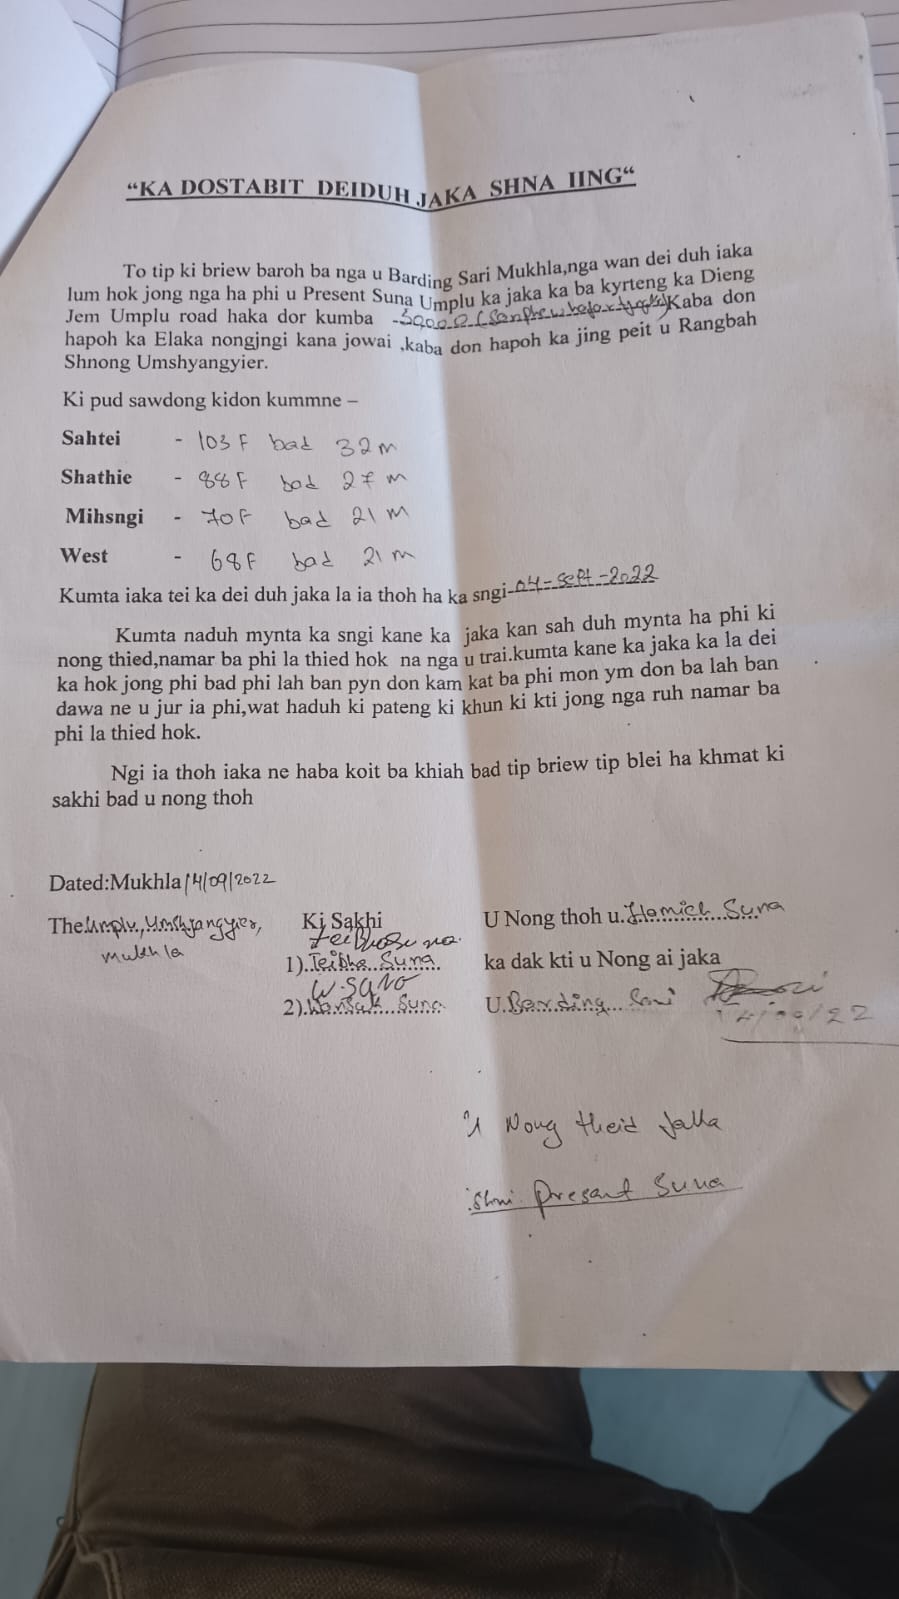 “KA DOSTABIT DEIDUH JAKA SHNA IING“
To tip ki briew baroh ba nga u Barding Sari Mukhla,nga wan dei duh iaka
lum hok jong nga ha phi u Present Suna Umplu ka jaka ka ba kyrteng ka Dieng
Jem Umplu road haka dor kumba Kaba don
hapoh ka Elaka nongjngi kana jowai ,kaba don hapoh ka jing peit u Rangbah
Shnong Umshyangyier.
Ki pud sawdong kidon kummne –
Sahtei - 103 F bad 32 m
Shathie - 88 F bad 27 m
Mihsngi - 70 F bad 21 M
West - 68 F bad 21 m
Kumta iaka tei ka dei duh jaka la ia thoh ha ka sngi-04-Sept-2022
Kumta naduh mynta ka sngi kane ka jaka kan sah duh mynta ha phi ki
nong thied,namar ba phi la thied hok na nga u trai.kumta kane ka jaka ka la dei
ka hok jong phi bad phi lah ban pyn don kam kat ba phi mon ym don ba lah ban
dawa ne u jur ia phi,wat haduh ki pateng ki khun ki kti jong nga ruh namar ba
phi la thied hok.
Ngi ia thoh iaka ne haba koit ba khiah bad tip briew tip blei ha khmat ki
sakhi bad u nong thoh
Dated:Mukhla 14/09/2022
The Umplu, Umshyangyier,
Mukhla
Ki Sakhi
1). Teibha Suna
W. SANO
2). Wansak Suna
U Nong thoh u. Hamich Suna
ka dak kti u Nong ai jaka
U. Barding Sari
14/09/22
U Nong theid Jaka
Shri Present Suna